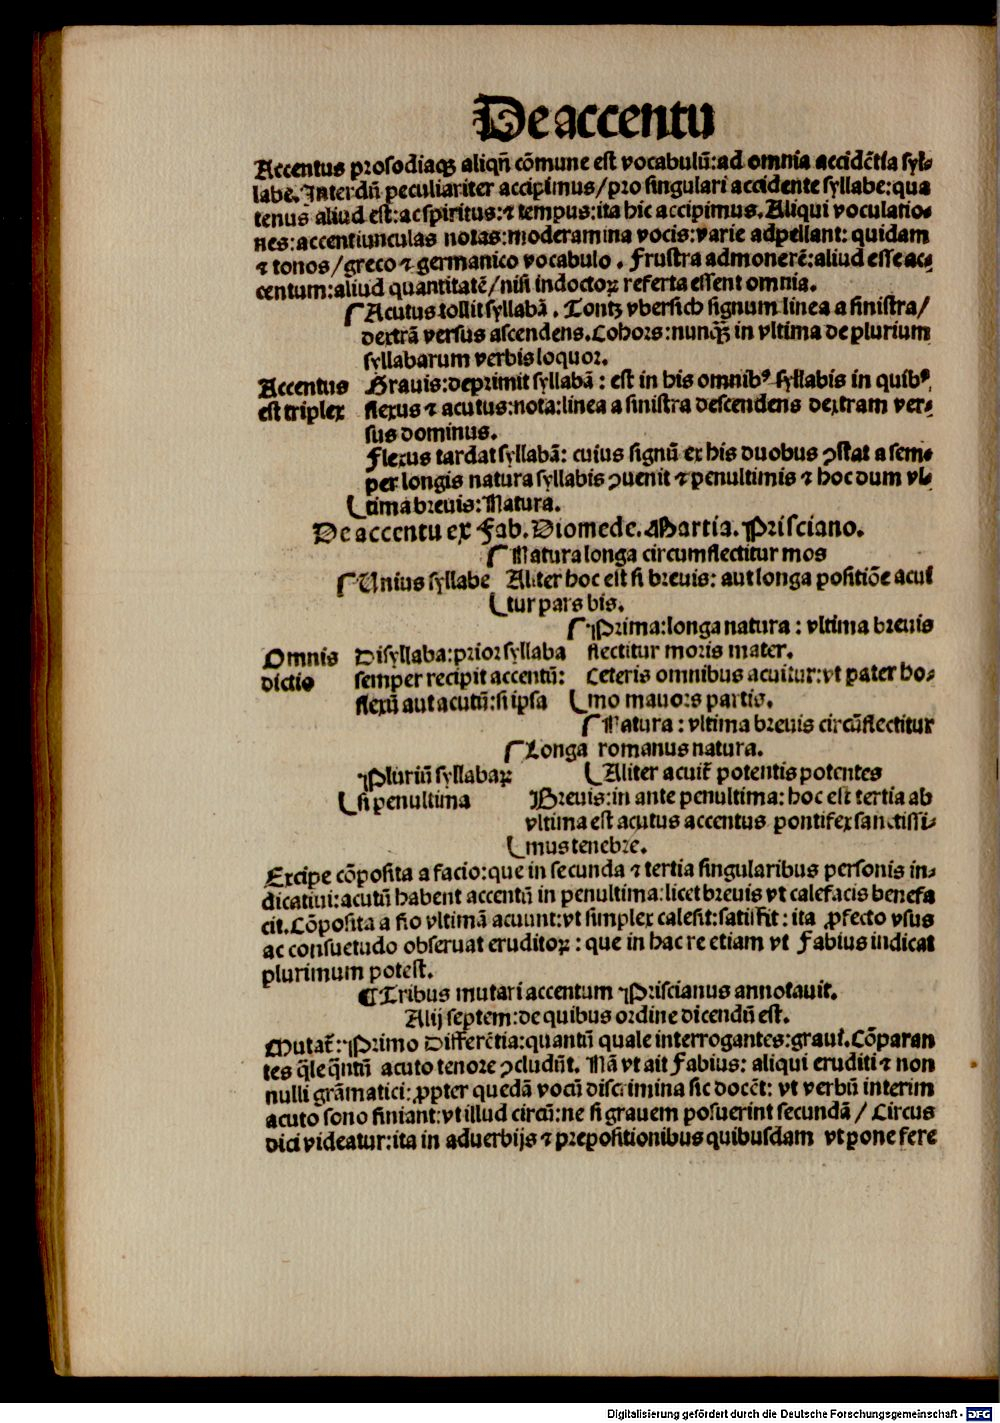 De accentu
Accentus prosodiaqꝫ aliqñ cõmune est vocabulũ: ad omnia accidẽtia syl-
labe. Interdũ peculiariter accipimus/ pro singulari accidente syllabe: qua
tenus aliud est: ac spiritus: ⁊ tempus: ita hic accipimus. Aliqui voculatio-
nes: accentiunculas notas: moderamina vocis: varie adpellant: quidam
⁊ tonos/ greco ⁊ germanico vocabulo. Frustra admonerẽ: aliud esse ac-
centum: aliud quantitatẽ/ nisi indoctoꝝ referta essent omnia.
Acutus tollit syllabã. Tontꝫ vbersich signum linea a sinistra/
dextrã versus ascendens. Cohors: nunqꝫ̃ in vltima de plurium
syllabarum verbis loquor.
Accentus Grauis: deprimit syllabã: est in his omnibꝰ syllabis in quibꝰ
est triplex flexus ⁊ acutus: nota: linea a sinistra descendens dextram ver-
sus dominus.
Flexus tardat syllabã: cuius signũ ex his duobus ꝯstat a sem-
per longis natura syllabis ꝯuenit ⁊ penultimis ⁊ hoc dum vl-
tima breuis: Natura.
De accentu ex Fab. Diomede. Martia. Prisciano.
Natura longa circumflectitur mos
Unius syllabe Aliter hoc est si breuis: aut longa positiõe acui
tur pars bis.
Prima: longa natura: vltima breuis
Omnis Disyllaba: prior syllaba flectitur moris mater.
dictio semper recipit accentũ: Ceteris omnibus acuitur: vt pater ho-
flexũ aut acutũ: si ipsa mo mauors partis.
Natura: vltima breuis circũflectitur
Longa romanus natura.
Pluriũ syllabaꝝ Aliter acuit̃ potentis potentes
si penultima Breuis: in ante penultima: hoc est tertia ab
vltima est acutus accentus pontifex sanctissi-
mus tenebre.
Excipe cõposita a facio: que in secunda ⁊ tertia singularibus personis in-
dicatiui: acutũ habent accentũ in penultima: licet breuis vt calefacis benefa
cit. Cõposita a fio vltimã acuunt: vt simplex calefit: satisfit: ita ꝓfecto vsus
ac consuetudo obseruat eruditoꝝ: que in hac re etiam vt Fabius indicat
plurimum potest.
¶ Tribus mutari accentum Priscianus annotauit.
Alij septem: de quibus ordine dicendũ est.
Mutat̃: Primo Differẽtia: quantũ quale interrogantes: grauĩ. Cõparan
tes q̃le q̃ntũ acuto tenore ꝯcludũt. Nã vt ait Fabius: aliqui eruditi ⁊ non
nulli grãmatici: ꝓpter quedã vocũ discrimina sic docẽt: vt verbũ interim
acuto sono finiant: vt illud circũ: ne si grauem posuerint secundã/ Circus
dici videatur: ita in aduerbijs ⁊ prepositionibus quibusdam vt pone fere
Digitalisierung gefördert durch die Deutsche Forschungsgemeinschaft - DFG